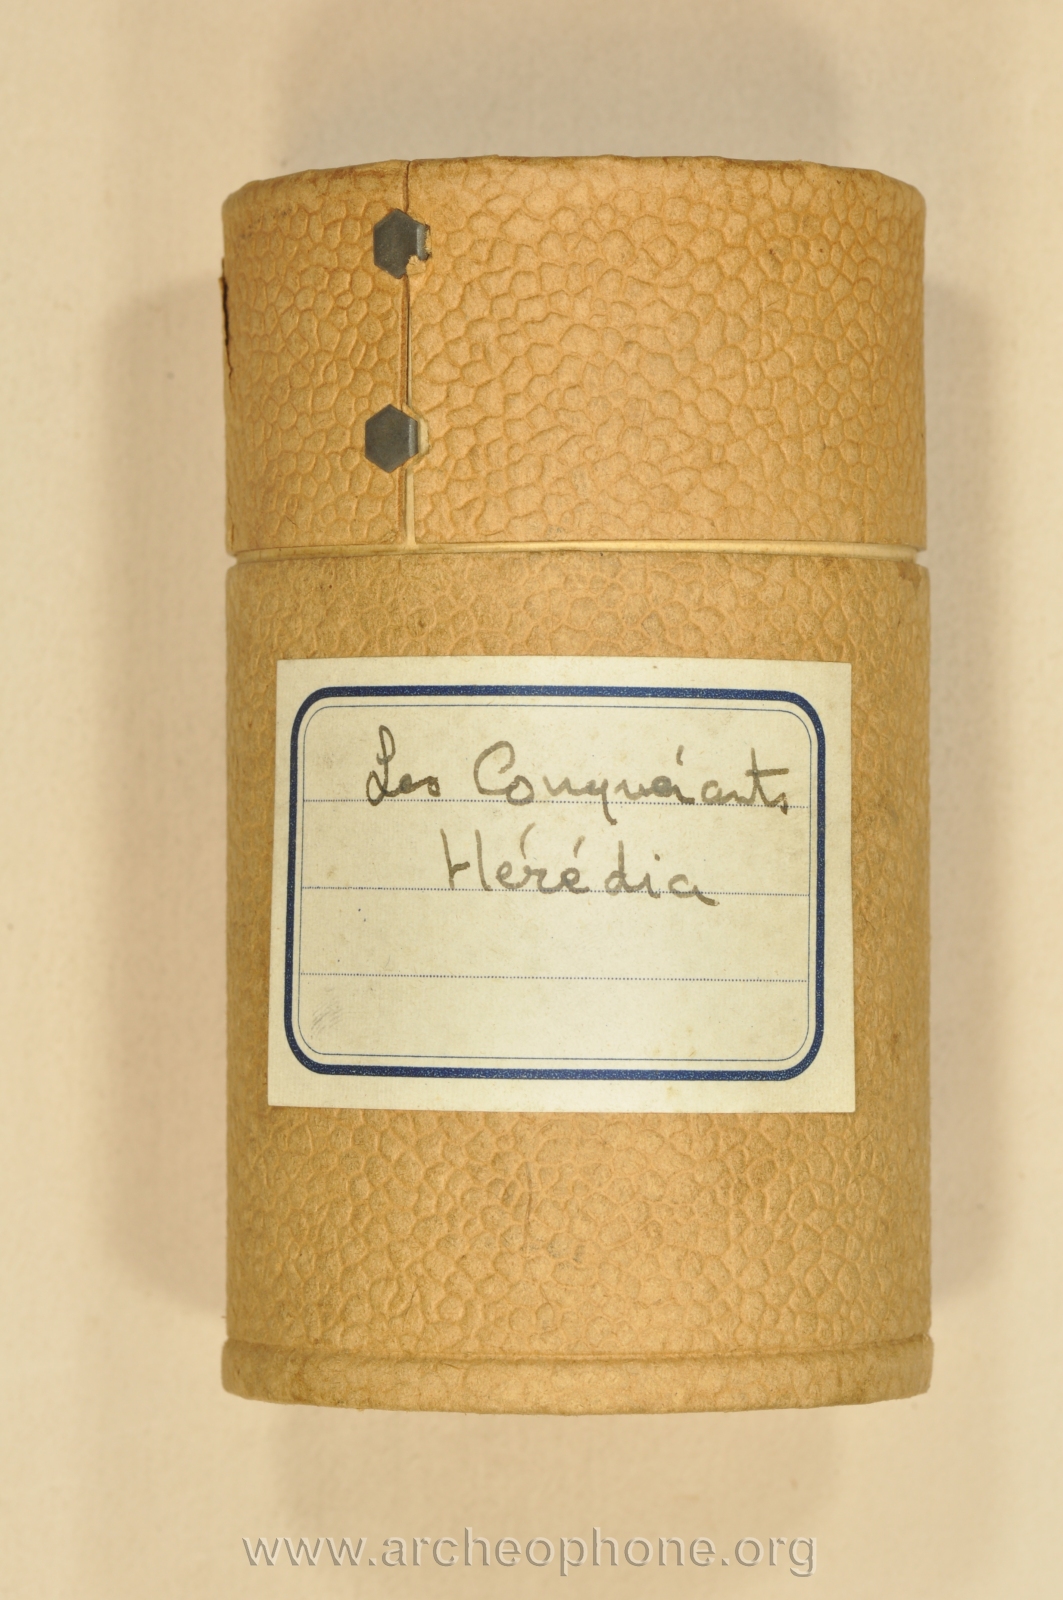 Les Conquérants
Hérédia
www.archeophone.org